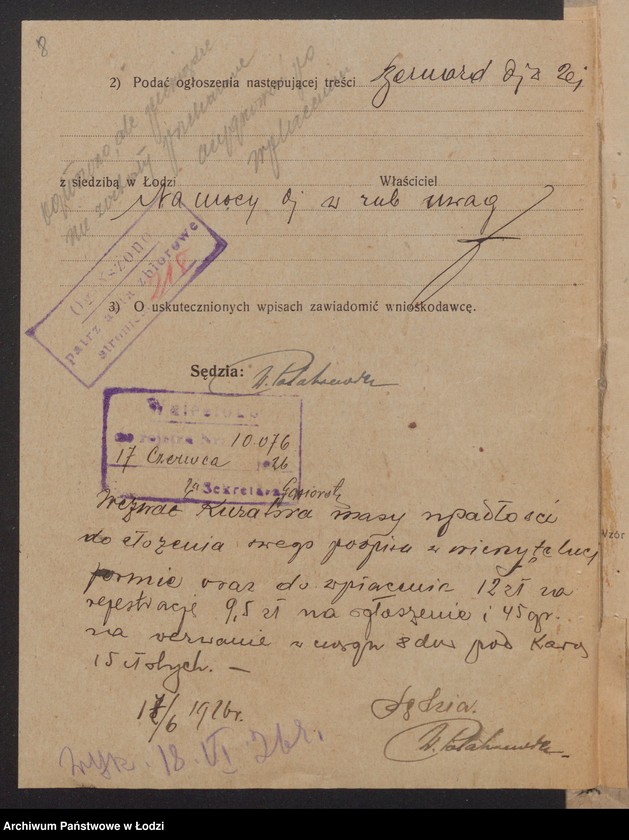 8
2) Podać ogłoszenia następującej treści
z siedzibą w Łodzi Właściciel
Na mocy dj z rub uwag
Ogłoszono
Patrz akta zbiorowe
stronica 218
3) O uskutecznionych wpisach zawiadomić wnioskodawcę.
Sędzia:
Wciągnięto
do rejestru Nr. 10.076
17 Czerwca 1926
za Sekretarz
Wezwać Kuratora masy upadłości
do złożenia swego podpisu w wierzytelnej
formie oraz do wpłacenia 12 zł na
rejestrację 9,5 zł na ogłoszenie i 45 gr.
na wezwanie w ciągu 8 dni pod karą
15 złotych. —
17/6 1926r.
Sędzia.
Wyk. 18. VI. 26 r.
Wzór
Archiwum Państwowe w Łodzi